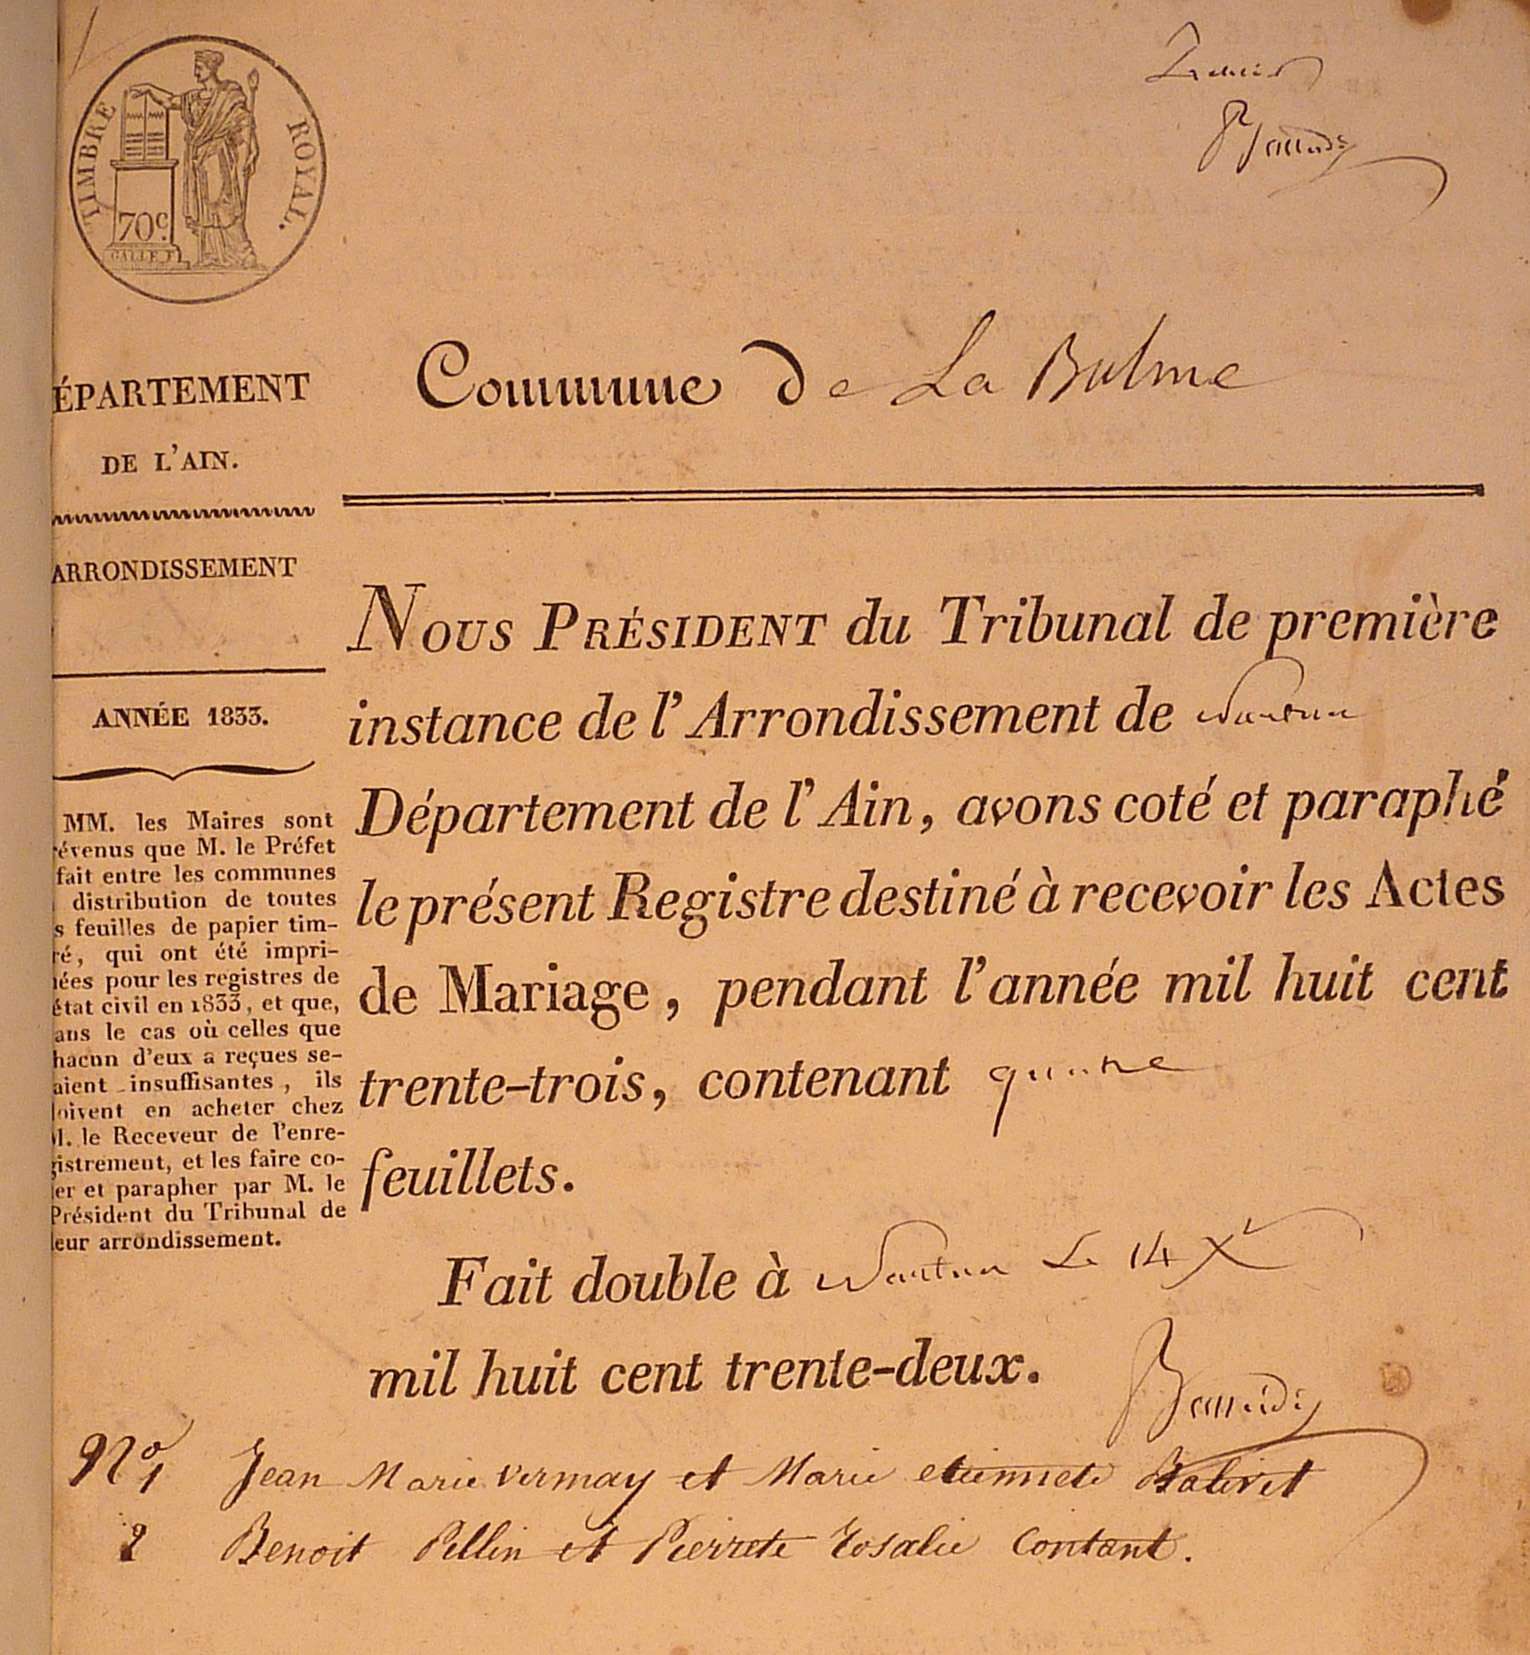 TIMBRE ROYAL.
70c.
Premier
Commune de La Balme
ÉPARTEMENT
DE L'AIN.
ARRONDISSEMENT
ANNÉE 1833.
MM. les Maires sont
révenus que M. le Préfet
fait entre les communes
distribution de toutes
s feuilles de papier tim-
ré, qui ont été impri-
ées pour les registres de
état civil en 1833, et que,
ans le cas où celles que
hacun d'eux a reçues se-
aient insuffisantes, ils
doivent en acheter chez
M. le Receveur de l'enre-
gistrement, et les faire co-
ter et parapher par M. le
Président du Tribunal de
leur arrondissement.
Nous PRÉSIDENT du Tribunal de première
instance de l'Arrondissement de Nantua
Département de l'Ain, avons coté et paraphé
le présent Registre destiné à recevoir les Actes
de Mariage, pendant l'année mil huit cent
trente-trois, contenant quatre
feuillets.
Fait double à Nantua Le 14 Xr
mil huit cent trente-deux.
No 1 Jean Marie Vermay et Marie etiennete Balivet
2 Benoit Pellin et Pierrete Rosalie Contant.